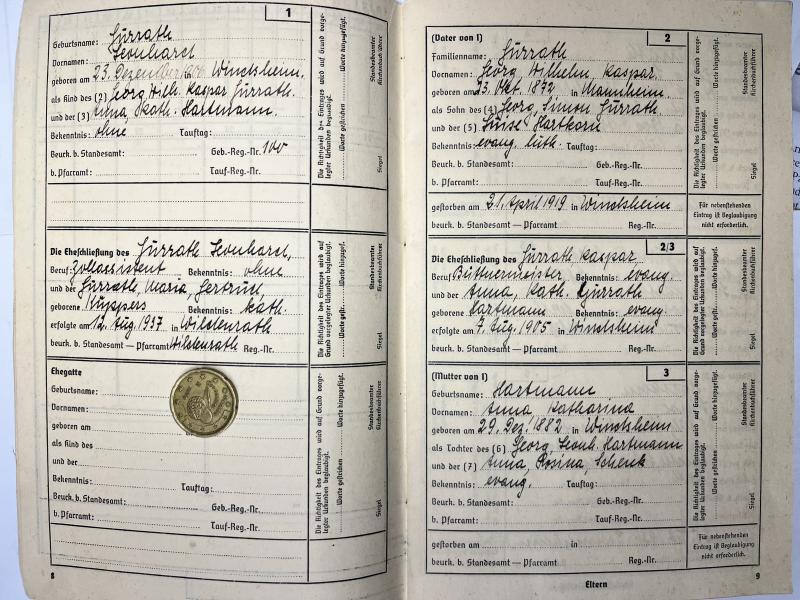 1
Geburtsname: Gurrath
Vornamen: Leonhard
geboren am 23. Dezember in Windsheim.
als Kind des (2) Georg, Wilh. Kaspar Gurrath.
und der (3) Anna, Kath. Hartmann.
Bekenntnis: ohne Tauftag:
Beurk. b. Standesamt: Geb.-Reg.-Nr. 100
b. Pfarramt: Tauf-Reg.-Nr.
Die Richtigkeit des Eintrages wird auf Grund vorge-
legter Urkunden beglaubigt.
Worte gestrichen Worte hinzugefügt.
Standesbeamter
Kirchenbuchführer
Siegel
Die Eheschließung des Gurrath Leonhard,
Beruf: Zollassistent Bekenntnis: ohne
und der Gurrath, Maria, Gertrud,
geborene Küppers Bekenntnis: kath.
erfolgte am 12. Aug. 1937 in Wildenrath
beurk. b. Standesamt — Pfarramt Wildenrath Reg.-Nr.
Die Richtigkeit des Eintrages wird auf
Grund vorgelegter Urkunden beglaubigt.
Worte gestr. Worte hinzugef.
Standesbeamter
Kirchenbuchführer
Siegel
Ehegatte
Geburtsname:
Vornamen:
geboren am
als Kind des
und der
Bekenntnis: Tauftag:
Beurk. b. Standesamt: Geb.-Reg.-Nr.
b. Pfarramt: Tauf-Reg.-Nr.
Die Richtigkeit des Eintrages wird auf Grund vorge-
legter Urkunden beglaubigt.
Worte gestrichen Worte hinzugefügt.
Standesbeamter
Kirchenbuchführer
Siegel
8
(Vater von 1) 2
Familienname: Gurrath
Vornamen: Georg, Wilhelm, Kaspar.
geboren am 23. Okt. 1872 in Mannheim
als Sohn des (4) Georg, Simon Gurrath.
und der (5) Luise Hartkorn
Bekenntnis: evang. luth. Tauftag:
Beurk. b. Standesamt: Geb.-Reg.-Nr.
b. Pfarramt: Tauf-Reg.-Nr.
Die Richtigkeit des Eintrages wird auf Grund vorge-
legter Urkunden beglaubigt.
Worte gestrichen Worte hinzugefügt.
Standesbeamter
Kirchenbuchführer
Siegel
gestorben am 21. April 1919 in Windsheim
beurk. b. Standesamt — Pfarramt Reg.-Nr.
Für nebenstehenden
Eintrag ist Beglaubigung
nicht erforderlich.
2/3
Die Eheschließung des Gurrath Kaspar,
Beruf Büttnermeister, Bekenntnis: evang.
und der Anna, Kath. Gurrath
geborene Hartmann Bekenntnis: evang.
erfolgte am 7. Aug. 1905 in Windsheim
beurk. b. Standesamt — Pfarramt Reg.-Nr.
Die Richtigkeit des Eintrages wird auf
Grund vorgelegter Urkunden beglaubigt.
Worte gestr. Worte hinzugef.
Standesbeamter
Kirchenbuchführer
Siegel
(Mutter von 1) 3
Geburtsname: Hartmann
Vornamen: Anna Katharina
geboren am 29. Dez. 1882 in Windsheim
als Tochter des (6) Georg, Leonh. Hartmann
und der (7) Anna, Rosina, Schenk
Bekenntnis: evang. Tauftag:
Beurk. b. Standesamt: Geb.-Reg.-Nr.
b. Pfarramt: Tauf-Reg.-Nr.
Die Richtigkeit des Eintrages wird auf Grund vorge-
legter Urkunden beglaubigt.
Worte gestrichen Worte hinzugefügt.
Standesbeamter
Kirchenbuchführer
Siegel
gestorben am in
beurk. b. Standesamt — Pfarramt Reg.-Nr.
Für nebenstehenden
Eintrag ist Beglaubigung
nicht erforderlich.
Eltern
9